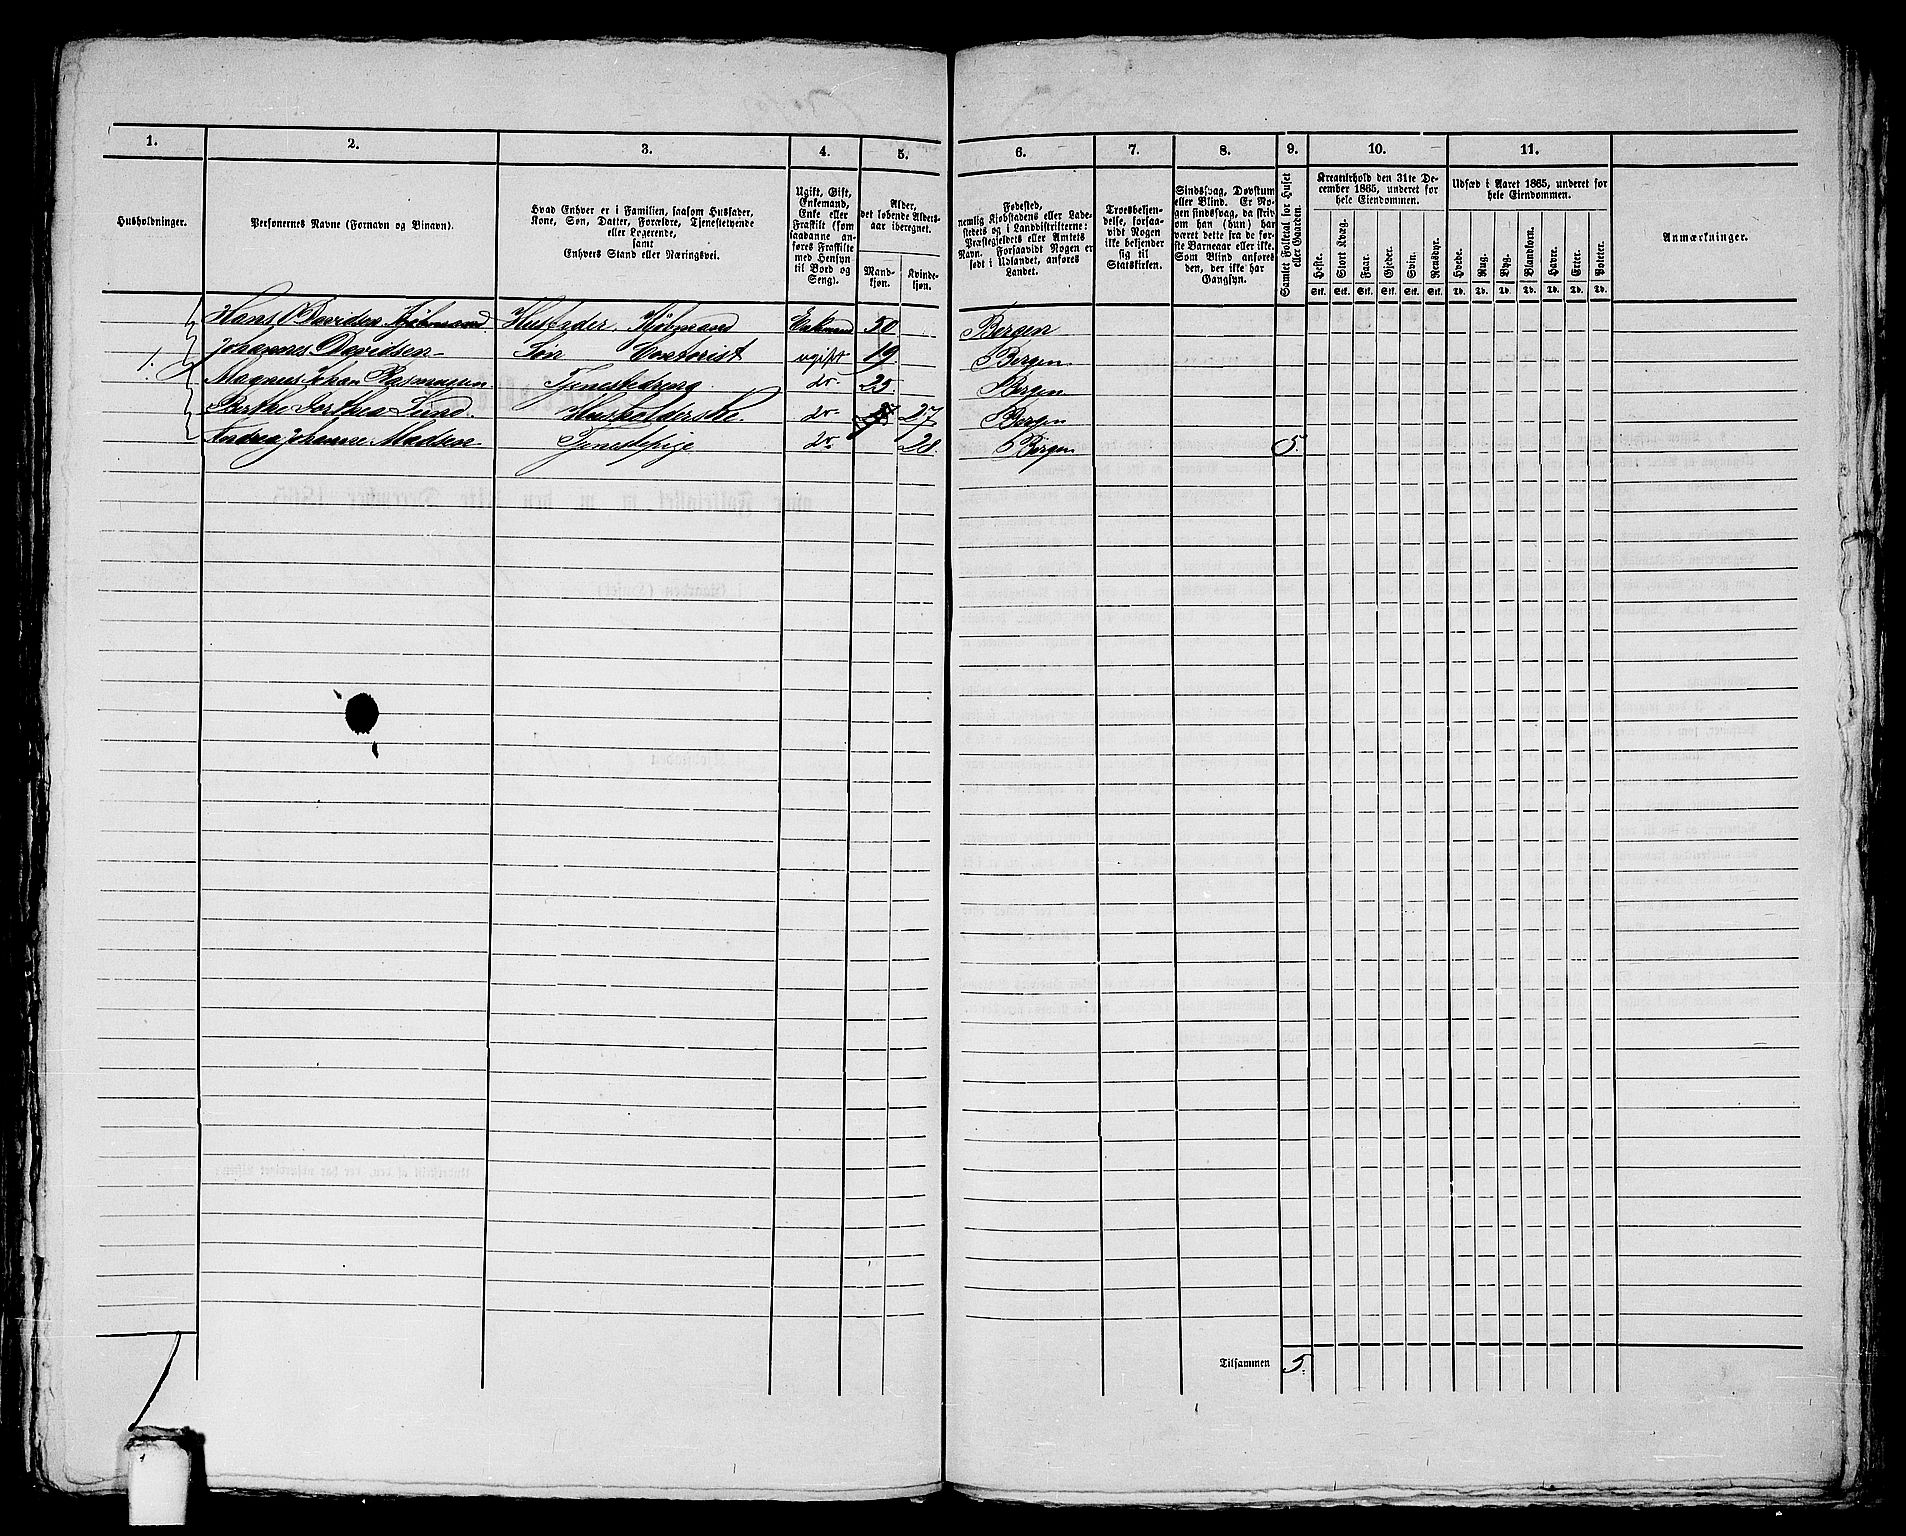 1. 2. 3. 4. 5. 6. 7. 8. 9. 10. 11.
Husholdninger.
Personernes Navne (Fornavn og Binavn).
Hvad Enhver er i Familien, saasom Husfader,
Kone, Søn, Datter, Forældre, Tjenestetyende
eller Logerende,
samt
Enhvers Stand eller Næringsvei.
Ugift, Gift,
Enkemand,
Enke eller
Fraskilt (som
saadanne an-
føres Fraskilte
med Hensyn
til Bord og
Seng).
Alder,
det løbende Alders-
aar iberegnet.
Mand-
kjøn.
Kvinde-
kjøn.
Fødested,
nemlig Kjøbstadens eller Lade-
stedets og i Landdistrikterne:
Præstegjeldets eller Amtets
Navn. Forsaavidt Nogen er
født i Udlandet, anføres
Landet.
Troesbekjen-
delse, forsaa-
vidt Nogen
ikke bekjender
sig til
Statskirken.
Sindssvag, Døvstum
eller Blind. Er No-
gen sindssvag, da skriv
om han (hun) har
været dette fra de før-
ste Barneaar eller ikke.
Som Blind anføres
den, der ikke har
Gangsyn.
Samlet Folketal for Huset
eller Gaarden.
Kreaturhold den 31te De-
cember 1865, underet for
hele Eiendommen.
Heste. Stort Kvæg. Faar. Gjeder. Svin. Rensdyr.
Stk. Stk. Stk. Stk. Stk. Stk.
Udsæd i Aaret 1865, underet for
hele Eiendommen.
Hvede. Rug. Byg. Blandkorn. Havre. Erter. Poteter.
Td. Td. Td. Td. Td. Td. Td.
Anmærkninger.
Hans Davidsen Kjøbmand Husfader Kjøbmand Enkmand 50 Bergen
1. Johannes Davidsen Søn Contorist ugift 19 Bergen
Magnus Johan Rasmussen Tjenestedreng do 25 Bergen
Berthe Dorthea Lund Husholderske do 27 Bergen
Andrea Johanne Madsen Tjenestepige do 28 Bergen 5.
Tilsammen 5.